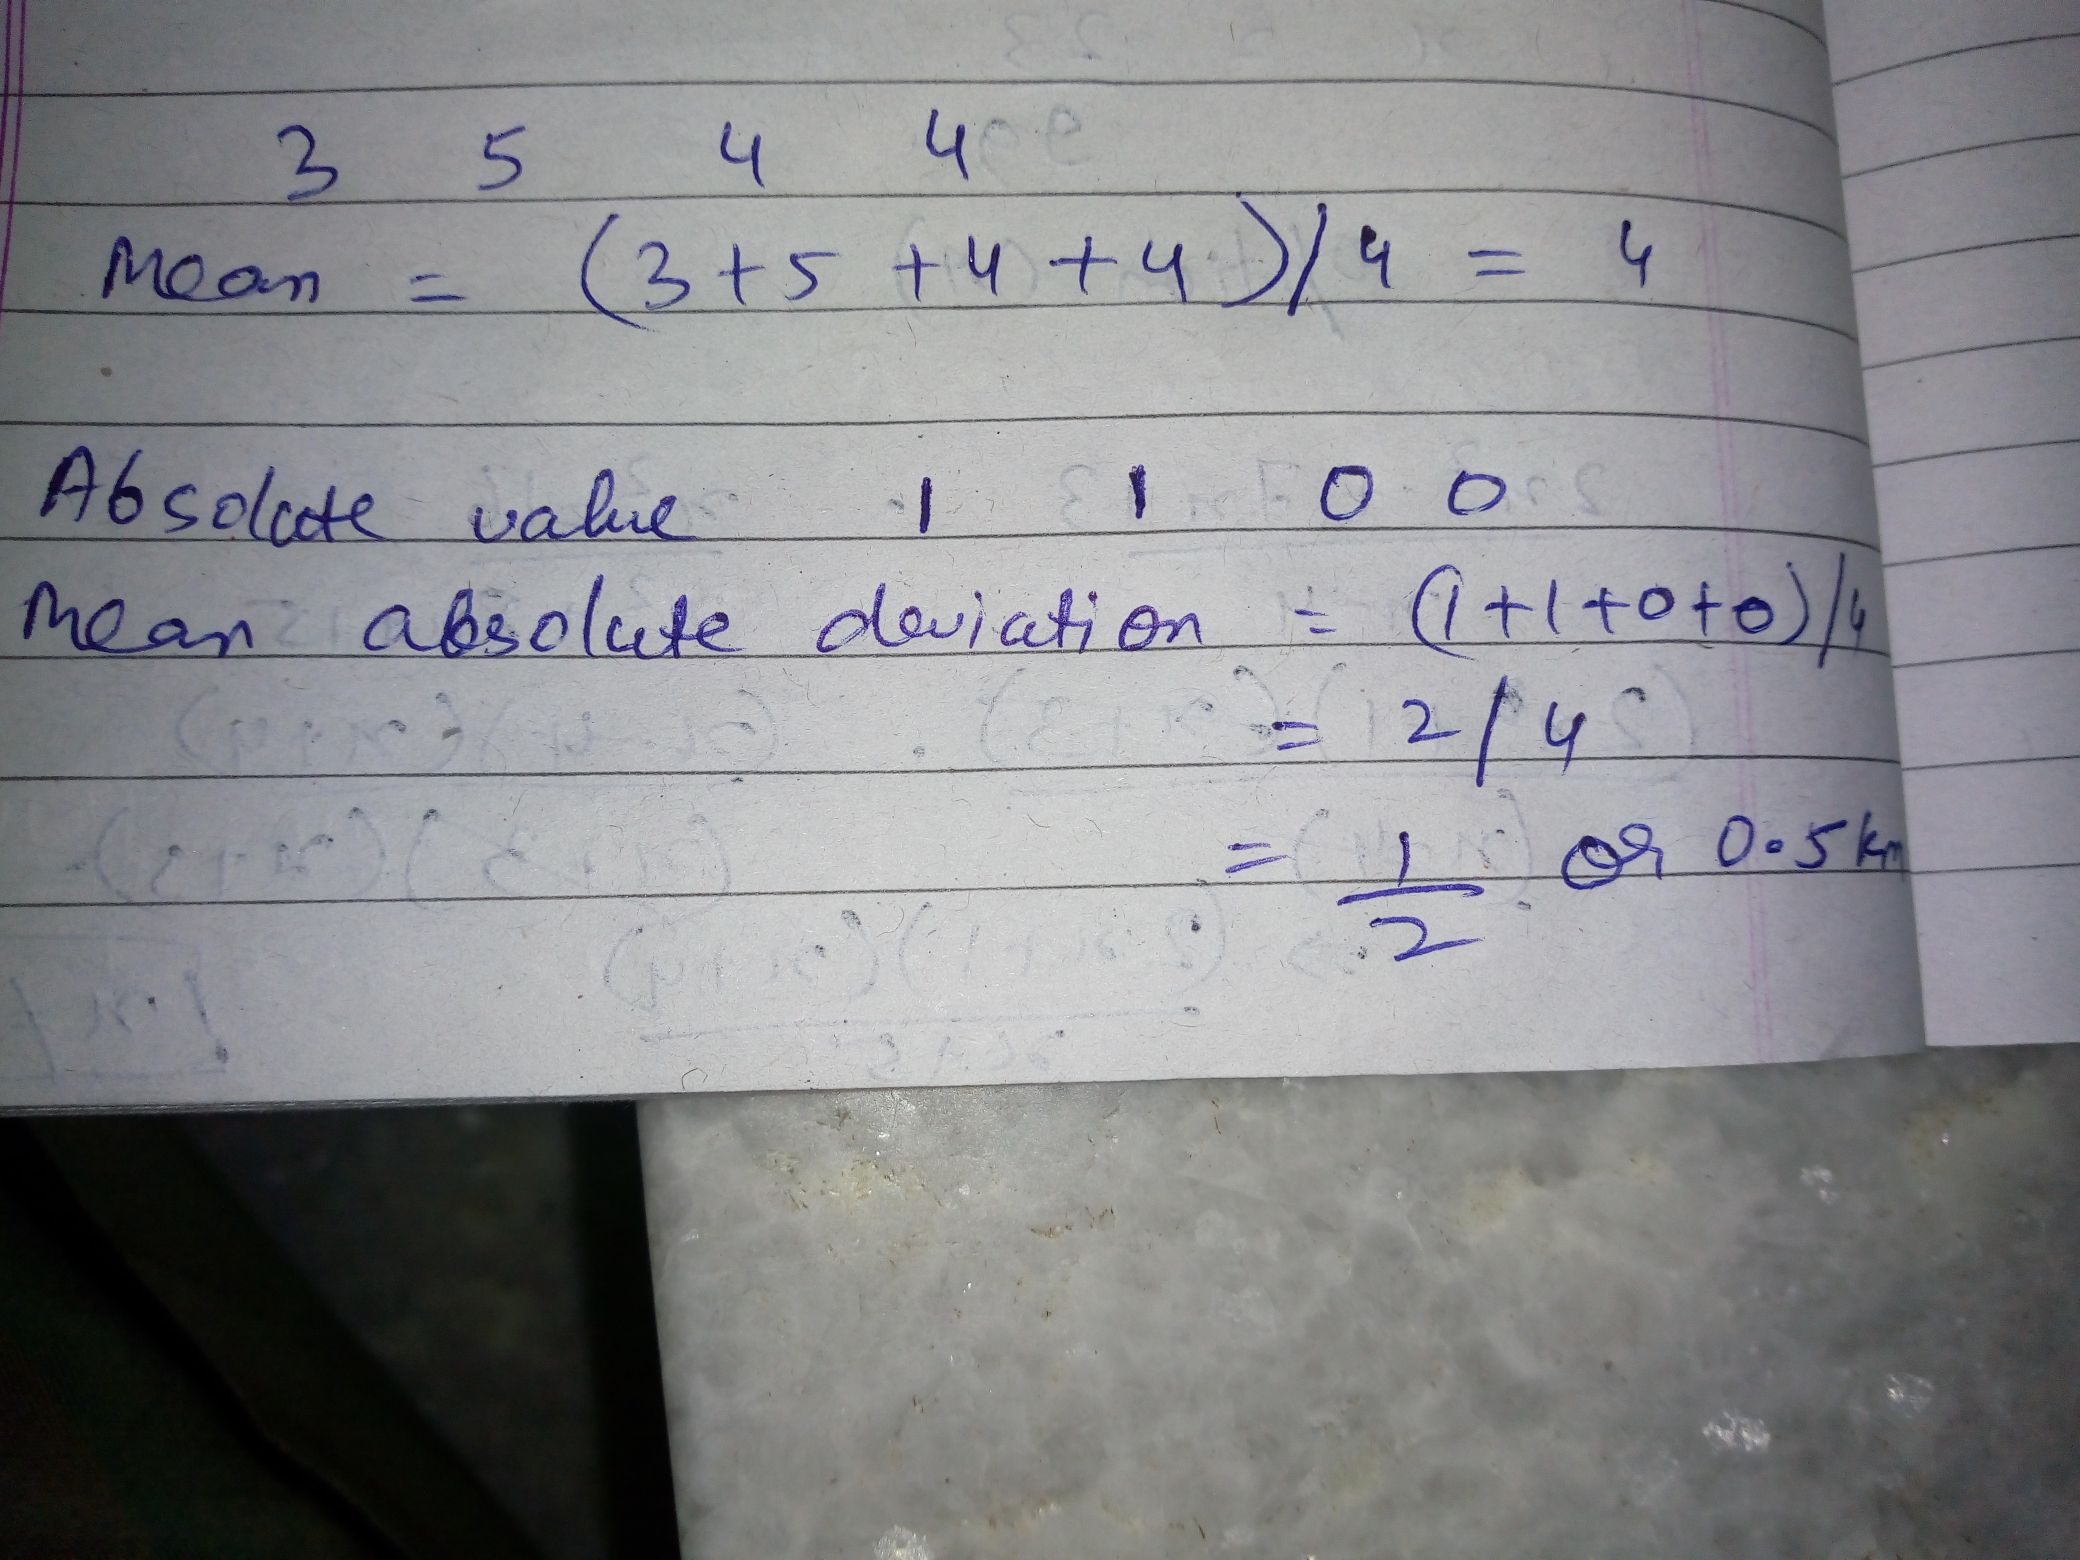 3 5 4 4
Mean = (3+5+4+4)/4 = 4
Absolute value 1 1 0 0
Mean absolute deviation = (1+1+0+0)/4
= 2/4
= 1/2 or 0.5km